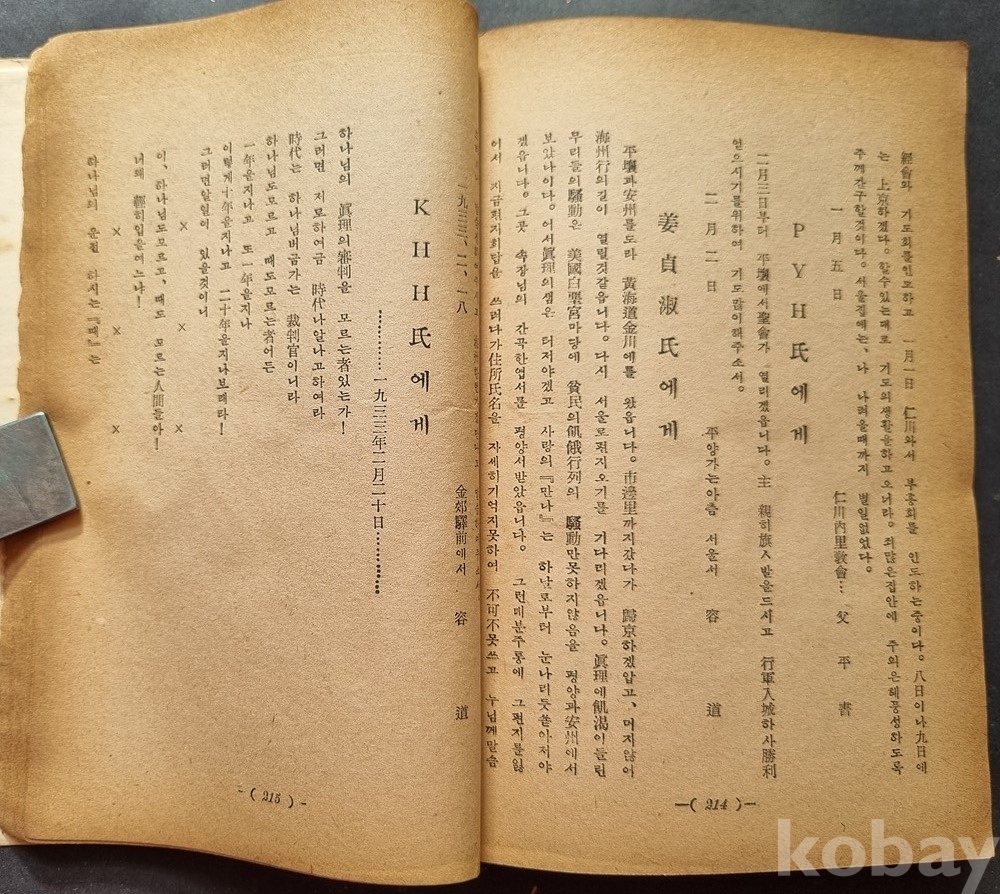 經會와 기도회를인도하고 一月一日 仁川와서 부흥회를 인도하는중이다。八日이나九日에
는 上京하겠다。할수있는대로 기도의생활을하고오너라。죄많은집안에 주의은혜풍성하도록
주께간구할것이다。서울집에는、나 려울때까지 별일없었다。
一月五日 仁川內里敎會…父 平 書
PYH氏에게
二月三日부터 平壤에서聖會가 열리겠읍니다。主 親히旗人발을드시고 行軍入城하사勝利
얻으시기를위하여 기도많이해주소서。
二月二日 平양가는아츰 서울서 容道
姜貞淑氏에게
平壤과安州를도라 黃海道金川에를 왔읍니다。市邊里까지갔다가 歸京하겠압고、머지않어
海州行의길이 열릴것같읍니다。다시 서울로편지오기를 기다리겠읍니다。眞理에飢渴이들린
무리들의騷動은 美國白堊宮마당에 貧民의飢餓行列의 騷動만못하지않음을 평양과安州에서
보았나이다。어서眞理의샘은 터저야겠고 사랑의『만나』는 하날로부터 눈나리듯쏟아저야
겠읍니다。그곳 속장님의 간곡한엽서를 평양서받았읍니다。 그런데분주통에 그편지를잃
어서 지금껏지회답을 쓰려다가住所氏名을 자세히기억지못하여 不可不못쓰고 누님께말슴
—( 214 )—
一九三三、二、一八 金郊驛前에서 容道
KHH氏에게
…………一九三三年二月二十日…………
하나님의 眞理의審判을 모르는者있는가!
그러면 저로하여금 時代나알나고하여라
時代는 하나님버금가는 裁判官이니라
하나님도모르고 때도모르는者어든
一年을지나고 또一年을지나
이렇게十年을지나고 二十年을지나보래라!
그러면알일이 있을것이니
× ×
이、하나님도모르고、때도 모르는人間들아!
너왜 輕히임을여느냐!
× × ×
하나님의 운전 하시는『때』는
-( 215 )-
kobay